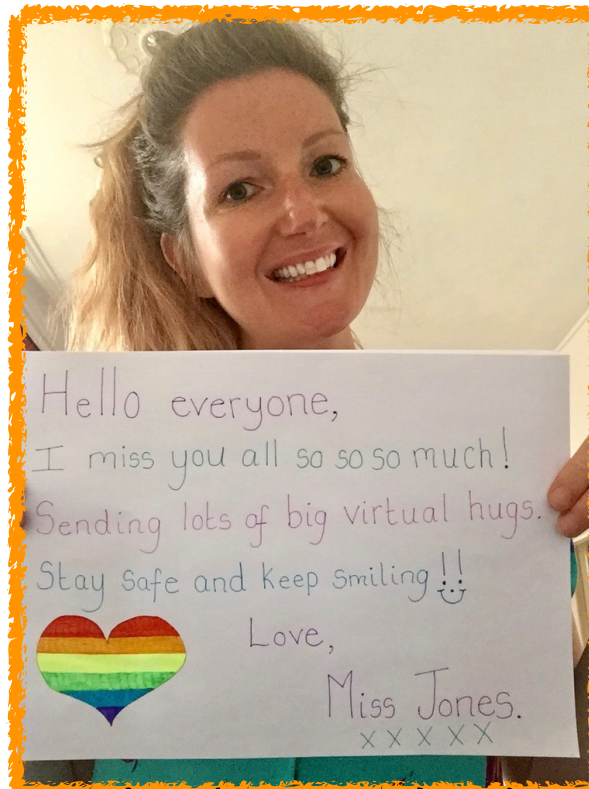 Hello everyone,
I miss you all so so so much!
Sending lots of big virtual hugs.
Stay safe and keep smiling!!
Love,
Miss Jones.
x x x x x